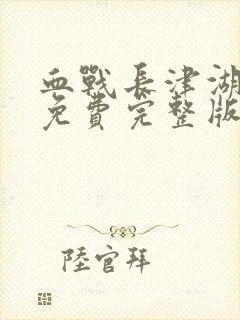 血戰長津湖
免費完整版
陸官拜